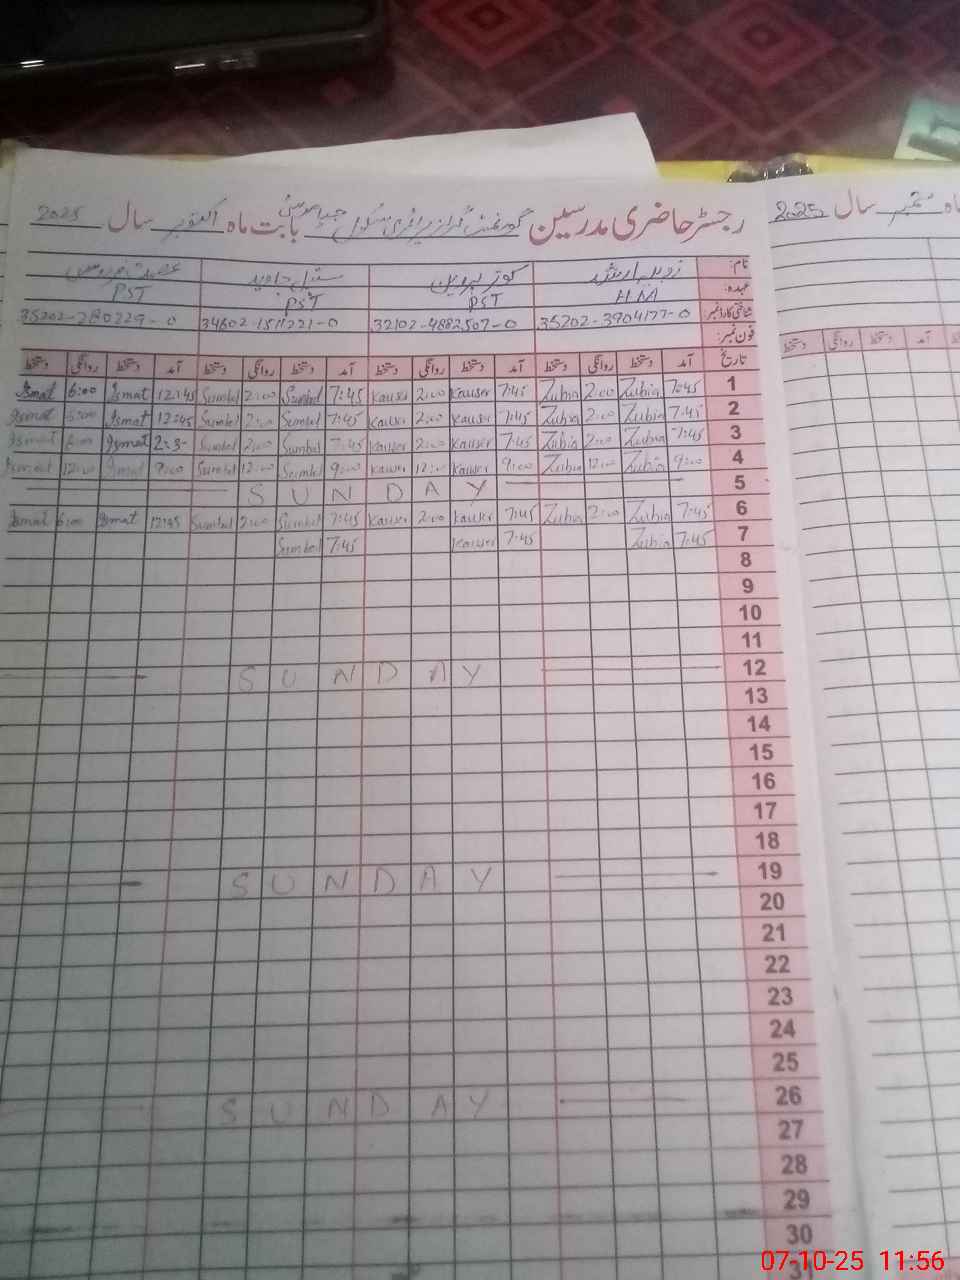 رجسٹر حاضری مدرسین گورنمنٹ گرلز پرائمری سکول بابت ماہ اکتوبر سال 2025
سال 2025
نام: کوثر پروین سنبل جاوید
عہدہ: PST PST PST
شناختی کارڈ نمبر: 35202-3904177-0 32102-4882507-0 34602-1511221-0 35202-280229-0
فون نمبر:
تاریخ آمد دستخط روانگی دستخط آمد دستخط روانگی دستخط آمد دستخط روانگی دستخط آمد دستخط روانگی دستخط
1 7:45 Zubia 2:00 Zubia 7:45 Kauser 2:00 Kauser 7:45 Sumbel 2:00 Sumbel 12:45 Ismat 6:00 Ismat
2 7:45 Zubia 2:00 Zubia 7:45 Kauser 2:00 Kauser 7:45 Sumbel 2:00 Sumbel 12:45 Ismat 6:00 Ismat
3 7:45 Zubia 2:00 Zubia 7:45 Kauser 2:00 Kauser 7:45 Sumbel 2:00 Sumbel Ismat 6:00 Ismat
4 9:00 Zubia 12:00 Zubia 9:00 Kauser 12:00 Kauser 9:00 Sumbel 12:00 Sumbel 9:00 Ismat 12:00 Ismat
5 SUNDAY
6 7:45 Zubia 2:00 Zubia 7:45 Kauser 2:00 Kauser 7:45 Sumbel 2:00 Sumbel 12:45 Ismat 6:00 Ismat
7 7:45 Zubia 7:45 Kauser 7:45 Sumbel
8
9
10
11
12 SUNDAY
13
14
15
16
17
18
19 SUNDAY
20
21
22
23
24
25
26 SUNDAY
27
28
29
30
31
07-10-25 11:56